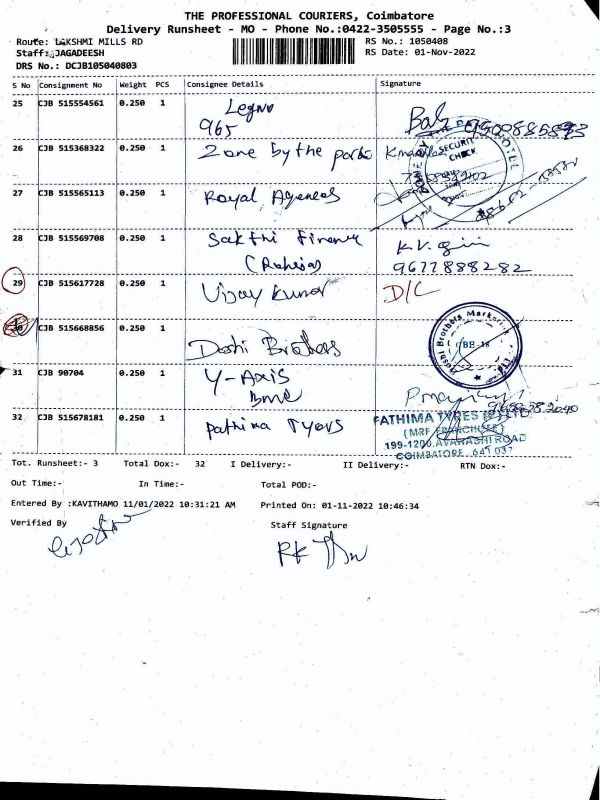 THE PROFESSIONAL COURIERS, Coimbatore
Delivery Runsheet - MO - Phone No.:0422-3505555 - Page No.:3
Route: LAKSHMI MILLS RD
RS No.: 1050408
Staff: JAGADEESH
RS Date: 01-Nov-2022
DRS No.: DCJB105040803
S No Consignment No Weight PCS Consignee Details Signature
25 CJB 515554561 0.250 1 Legno
965
26 CJB 515368322 0.250 1 Zone by the
SECURITY
CHECK
27 CJB 515565113 0.250 1 Royal Agences
28 CJB 515569708 0.250 1 Sakthi Finance K.V. Giri
9677888282
29 CJB 515617728 0.250 1 Vijay Kumar D/C
CJB 515668856 0.250 1 Doshi Brothers
Doshi Brothers Marketing
CBE-18
31 CJB 90704 0.250 1 Y-Axis
32 CJB 515678181 0.250 1 Pathima Tyers
FATHIMA TYRES (P) LTD.
(MRF FRANCHISEE)
199-1200, AVANASHI ROAD
COIMBATORE - 641 037
Tot. Runsheet:- 3 Total Dox:- 32 I Delivery:- II Delivery:- RTN Dox:-
Out Time:- In Time:- Total POD:-
Entered By :KAVITHAMO 11/01/2022 10:31:21 AM Printed On: 01-11-2022 10:46:34
Verified By Staff Signature